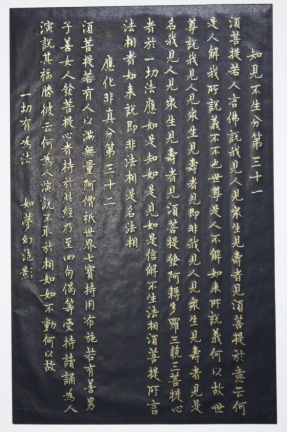 知見不生分第三十一
須菩提若人言佛說我見人見眾生見壽者見須菩提於意云何
是人解我所說義不不也世尊是人不解如來所說義何以故世
尊說我見人見眾生見壽者見即非我見人見眾生見壽者見是
名我見人見眾生見壽者見須菩提發阿耨多羅三藐三菩提心
者於一切法應如是知如是見如是信解不生法相須菩提所言
法相者如來說即非法相是名法相
應化非真分第三十二
須菩提若有人以滿無量阿僧祇世界七寶持用布施若有善男
子善女人發菩提心者持於此經乃至四句偈等受持讀誦為人
演說其福勝彼云何為人演說不取於相如如不動何以故
一切有為法　如夢幻泡影